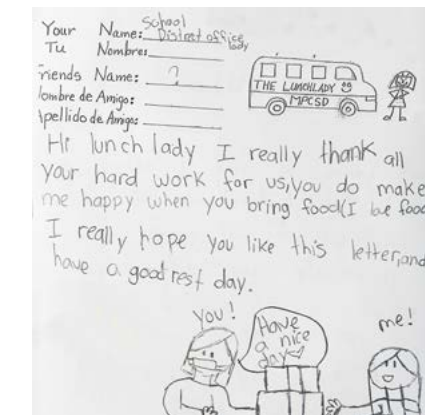 Your Name: School
District office lady
Tu Nombre:
riends Name: ?
lombre de Amigo:
pellido de Amigo:
THE LUNCHLADY
MPCSD
Hi lunch lady I really thank all
your hard work for us, you do make
me happy when you bring food(I love food
I really hope you like this letter, and
have a good rest day.
you!
Have
a nice
day
me!